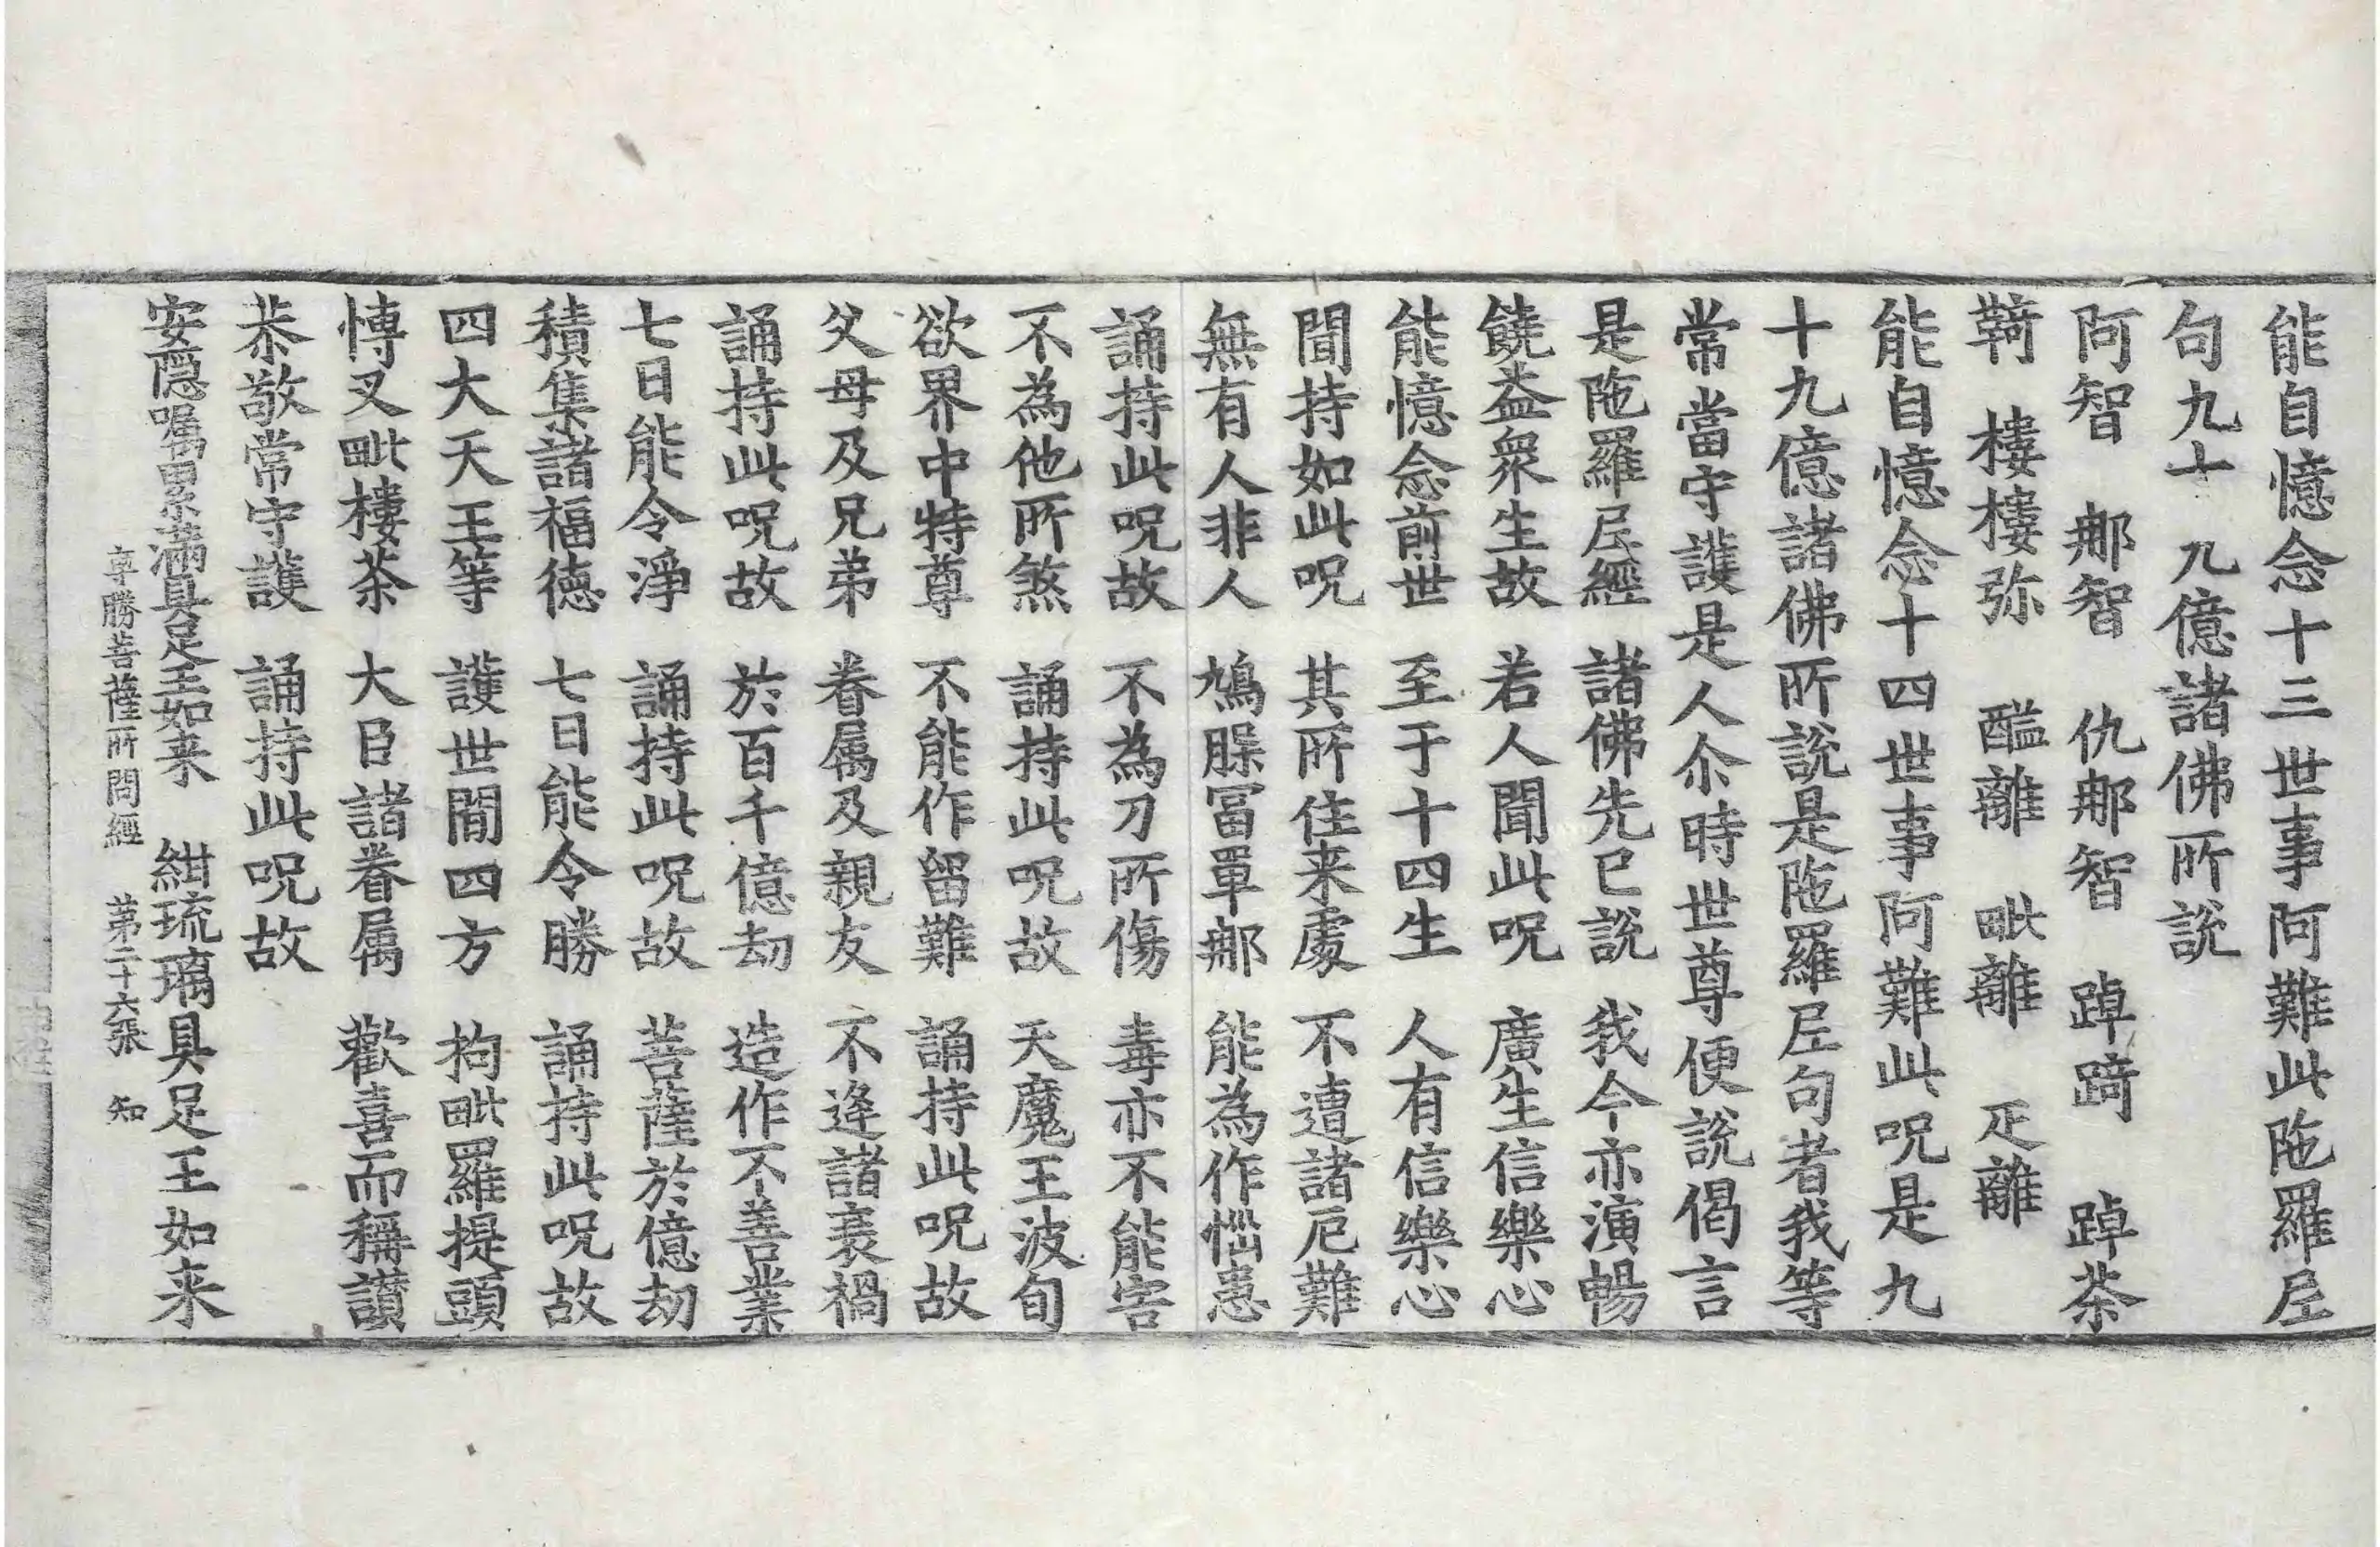 能自憶念十三世事阿難此陁羅𡰱
句九十九億諸佛所說
阿智 郍智 仇郍智 踔䠸 踔茶
鞫 樓樓弥 醯離 毗離 疋離
能自憶念十四世事阿難此呪是九
十九億諸佛所說是陁羅𡰱句者我等
常當守護是人尒時世尊便說偈言
是陁羅𡰱經 諸佛先已說 我今亦演暢
饒益衆生故 若人聞此呪 廣生信樂心
能憶念前世 至于十四生 人有信樂心
聞持如此呪 其所住来處 不遭諸厄難
無有人非人 鳩㬅冨單郍 能為作惱患
誦持此呪故 不為刀所傷 毒亦不能害
不為他所煞 誦持此呪故 天魔王波旬
欲界中特尊 不能作留難 誦持此呪故
父母及兄弟 眷属及親友 不逢諸衰禍
誦持此呪故 於百千億劫 造作不善業
七日能令淨 誦持此呪故 菩薩於億劫
積集諸福德 七日能令勝 誦持此呪故
四大天王等 護世閒四方 拘毗羅提頭
愽叉毗樓茶 大臣諸眷属 歡喜而稱讃
恭敬常守護 誦持此呪故
安隱囑累滿具足王如来 紺琉璃具足王如来
勝菩薩所問經 第二十六張 知